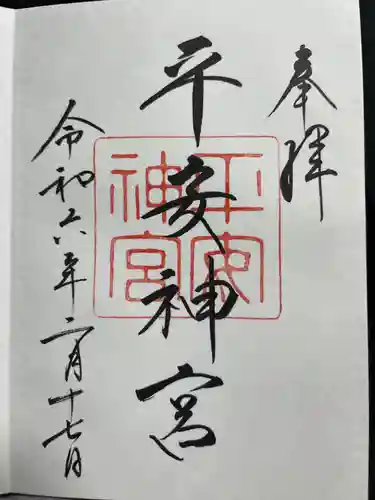 奉拝
平安神宮
平安神宮
令和六年二月十七日